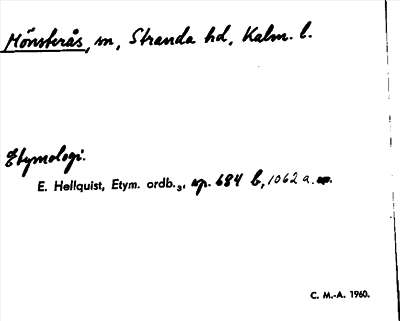 Mönsterås, sn, Stranda hd, Kalm. l.
Etymologi.
E. Hellquist, Etym. ordb.₃, sp. 684 b, 1062 a.
C. M.-A. 1960.